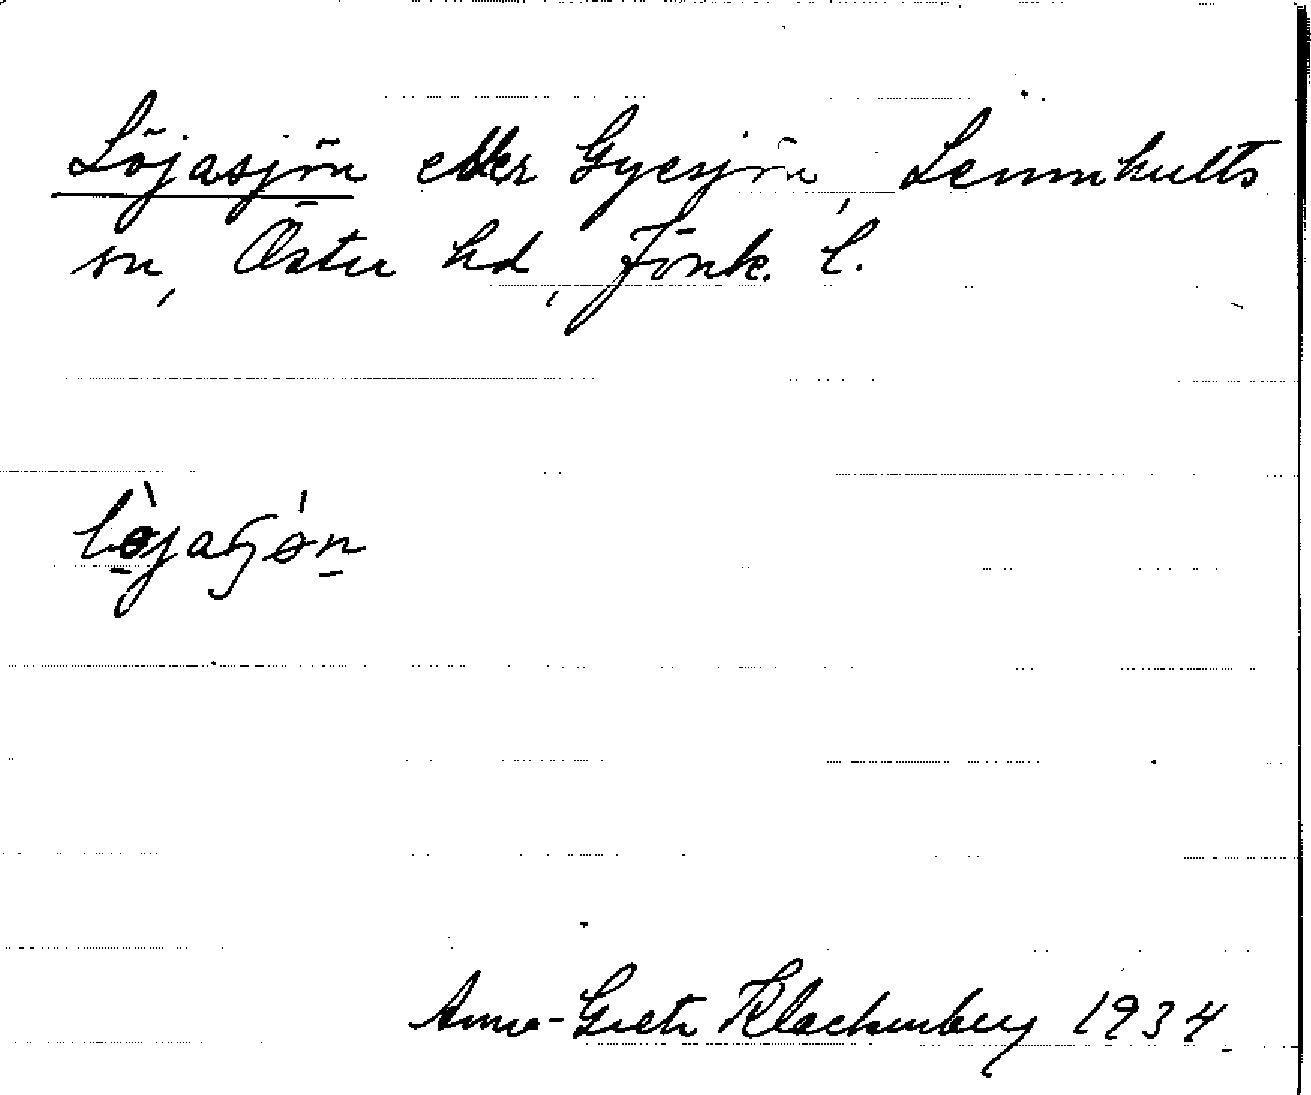 Löjasjön eller Gyesjön, Lemnhults
sn, Östra hd, Jönk. l.
lø̀jaʃǿn
Anna-Greta Klackenberg 1934